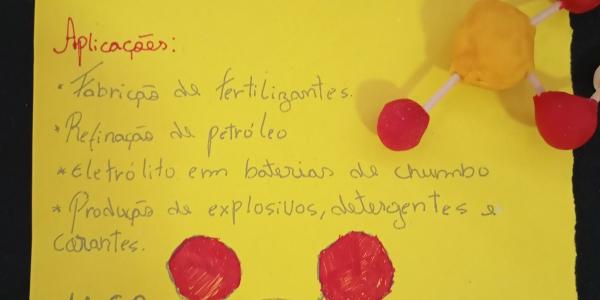 Aplicações:
• Fabricação de fertilizantes.
• Refinação de petróleo
* Eletrólito em baterias de chumbo
* Produção de explosivos, detergentes e
corantes.